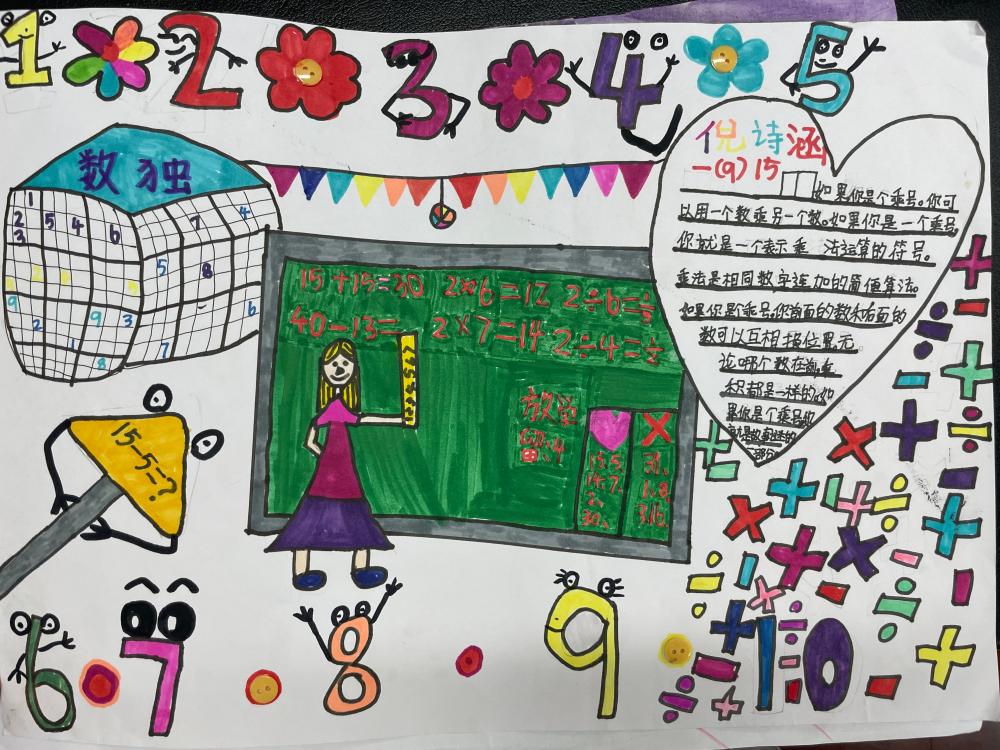 1 2 3 4 5
数独
1
2 5 4 6
3
7 4
5 8
6
7
9 9 3
2
8
15+15=30 2×6=12 2÷6=⅓
40-13= 2×7=14 2÷4=½
教学
15-5=?
倪诗涵
一(9) 15
如果你是个乘号。你可
以用一个数乘另一个数。如果你是一个乘号
你就是一个表示乘 法运算的符号。
乘法是相同数字连加的简便算法。
如果你是乘号你前面的数和后面的
数可以互相 换位置无
论哪个数在前面
积都是一样的。如
果你是个乘号你
6 7 8 9 10